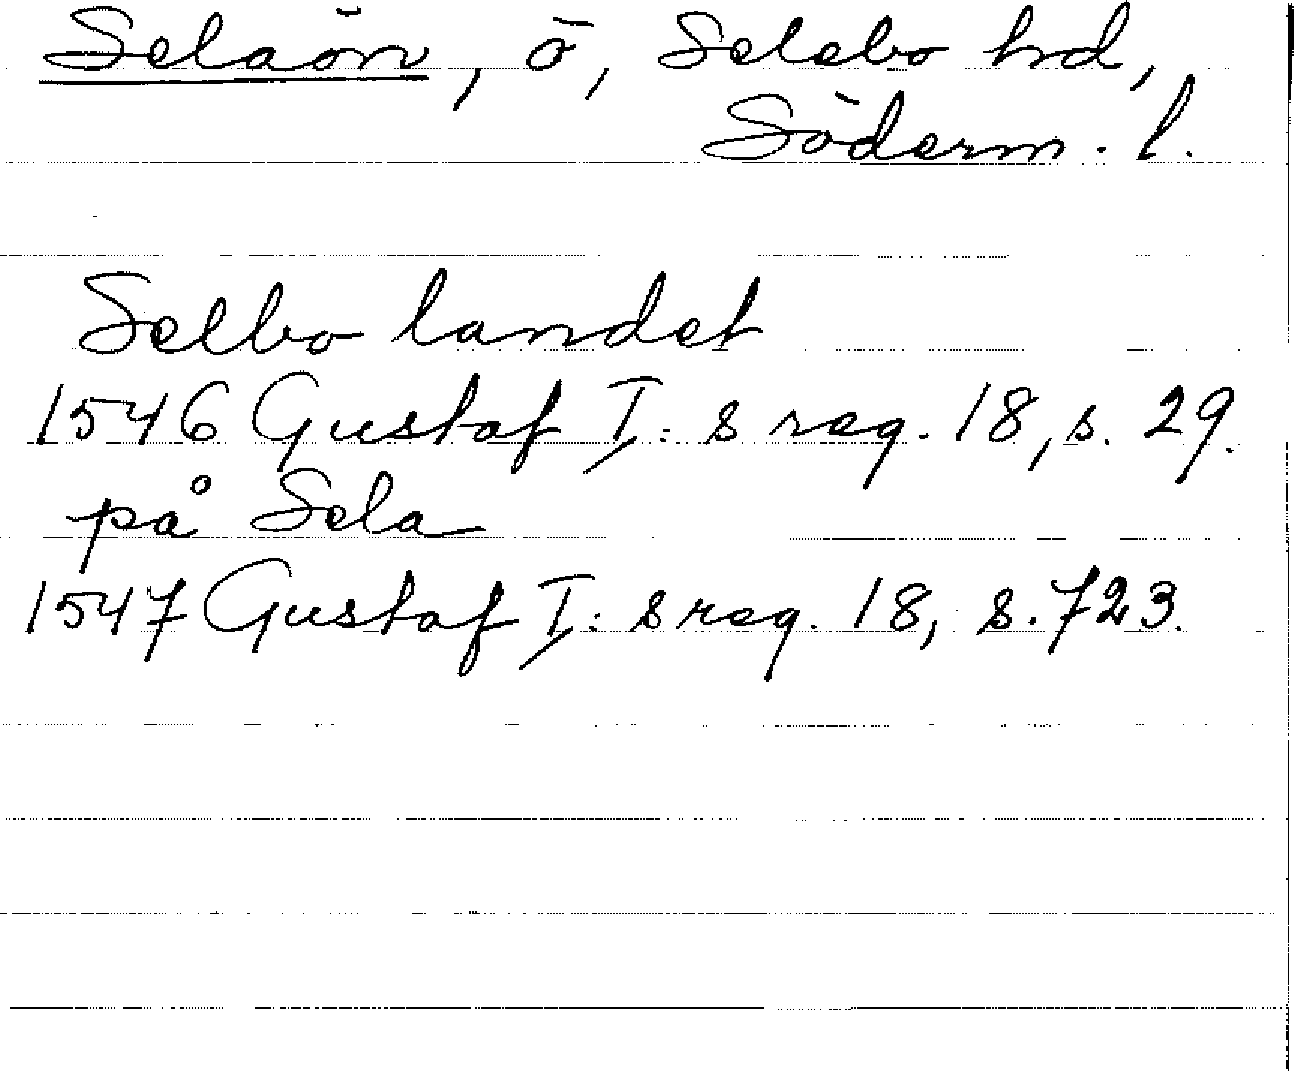 Selaön, ö, Selebo hd,
Söderm. l.
Selbo landet
1546 Gustaf I:s reg. 18, s. 29.
på Sela
1547 Gustaf I:s reg. 18, s. 723.